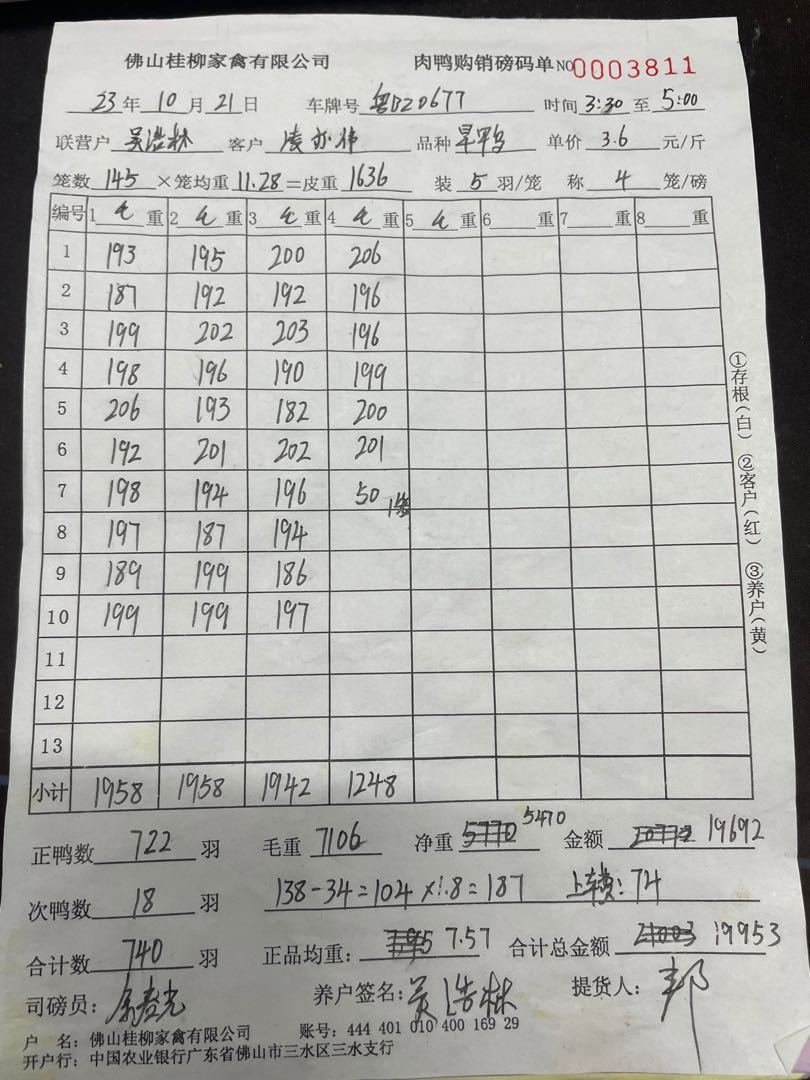 佛山桂柳家禽有限公司 肉鸭购销磅码单 NO 0003811
23年10月21日 车牌号 粤BZ0677 时间 3:30 至 5:00
联营户 吴浩林 客户 凌亦伟 品种 旱鸭 单价 3.6 元/斤
笼数 145 ×笼均重 11.28 =皮重 1636 装 5 羽/笼 称 4 笼/磅
编号 1 毛 重 2 毛 重 3 毛 重 4 毛 重 5 毛 重 6 重 7 重 8 重
1 193 195 200 206
2 187 192 192 196
3 199 202 203 196
4 198 196 190 199
5 206 193 182 200
6 192 201 202 201
7 198 194 196 50 1笼
8 197 187 194
9 189 199 186
10 199 199 197
11
12
13
小计 1958 1958 1942 1248
①存根(白) ②客户(红) ③养户(黄)
正鸭数 722 羽 毛重 7106 净重 5470 金额 19692
次鸭数 18 羽 138-34=104×1.8=187 上车费:74
合计数 740 羽 正品均重: 7.57 合计总金额 19953
司磅员: 养户签名:吴浩林 提货人:邦
户 名:佛山桂柳家禽有限公司 账号:444 401 010 400 169 29
开户行:中国农业银行广东省佛山市三水区三水支行